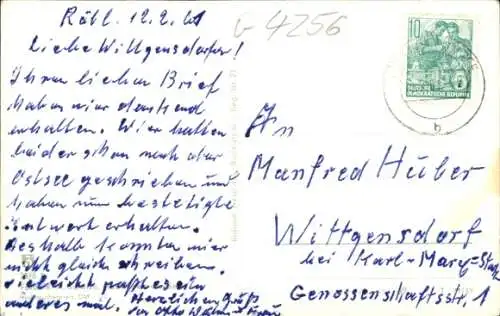 Röbl. 12.2.61
G 4256
Liebe Wittgensdorfer!
Ihren lieben Brief
haben wir dankend
erhalten. Wir hatten
leider schon nach der
Ostsee geschrieben und
haben nun bestätigte
Antwort erhalten.
Deshalb konnten wir
nicht gleich schreiben.
Vielleicht paßt es ein
anderes mal. Herzlichen Gruß
Otto u. Frau
10
DEUTSCHE
DEMOKRATISCHE REPUBLIK
b
An
Manfred Huber
Wittgensdorf
bei Karl-Marx-Stadt
Genossenschaftsstr. 1